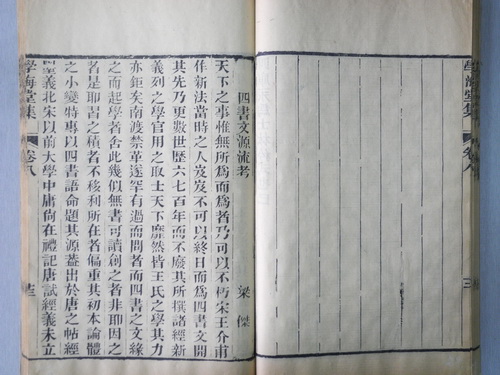 學海堂集
卷八
三
四書文源流考
梁傑
天下之事惟無所爲而爲者乃可以不朽宋王介甫
作新法當時之人岌岌不可以終日而爲四書文開
其先乃更數世歷六七百年而不廢其所撰諸經新
義列之學官用之取士天下靡然皆王氏之學其力
亦鉅矣南渡禁革遂罕有過而問者而四書之文緣
之而起學者舍此幾似無書可讀創之者非即因之
者是即習之積者不移利所在者偏重其初本論體
之小變特專以四書語命題其源蓋出於唐之帖經
墨義北宋以前大學中庸尚在禮記唐試經義未立
學海堂集
卷八